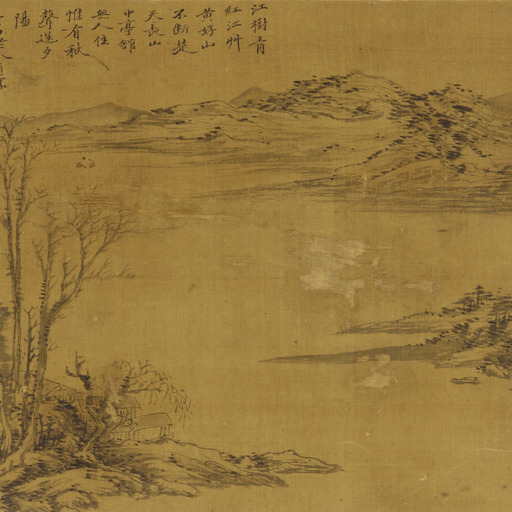 江樹青
紅江艸
黃好山
不斷楚
天長山
中亭館
無人住
惟有秋
聲送夕
陽